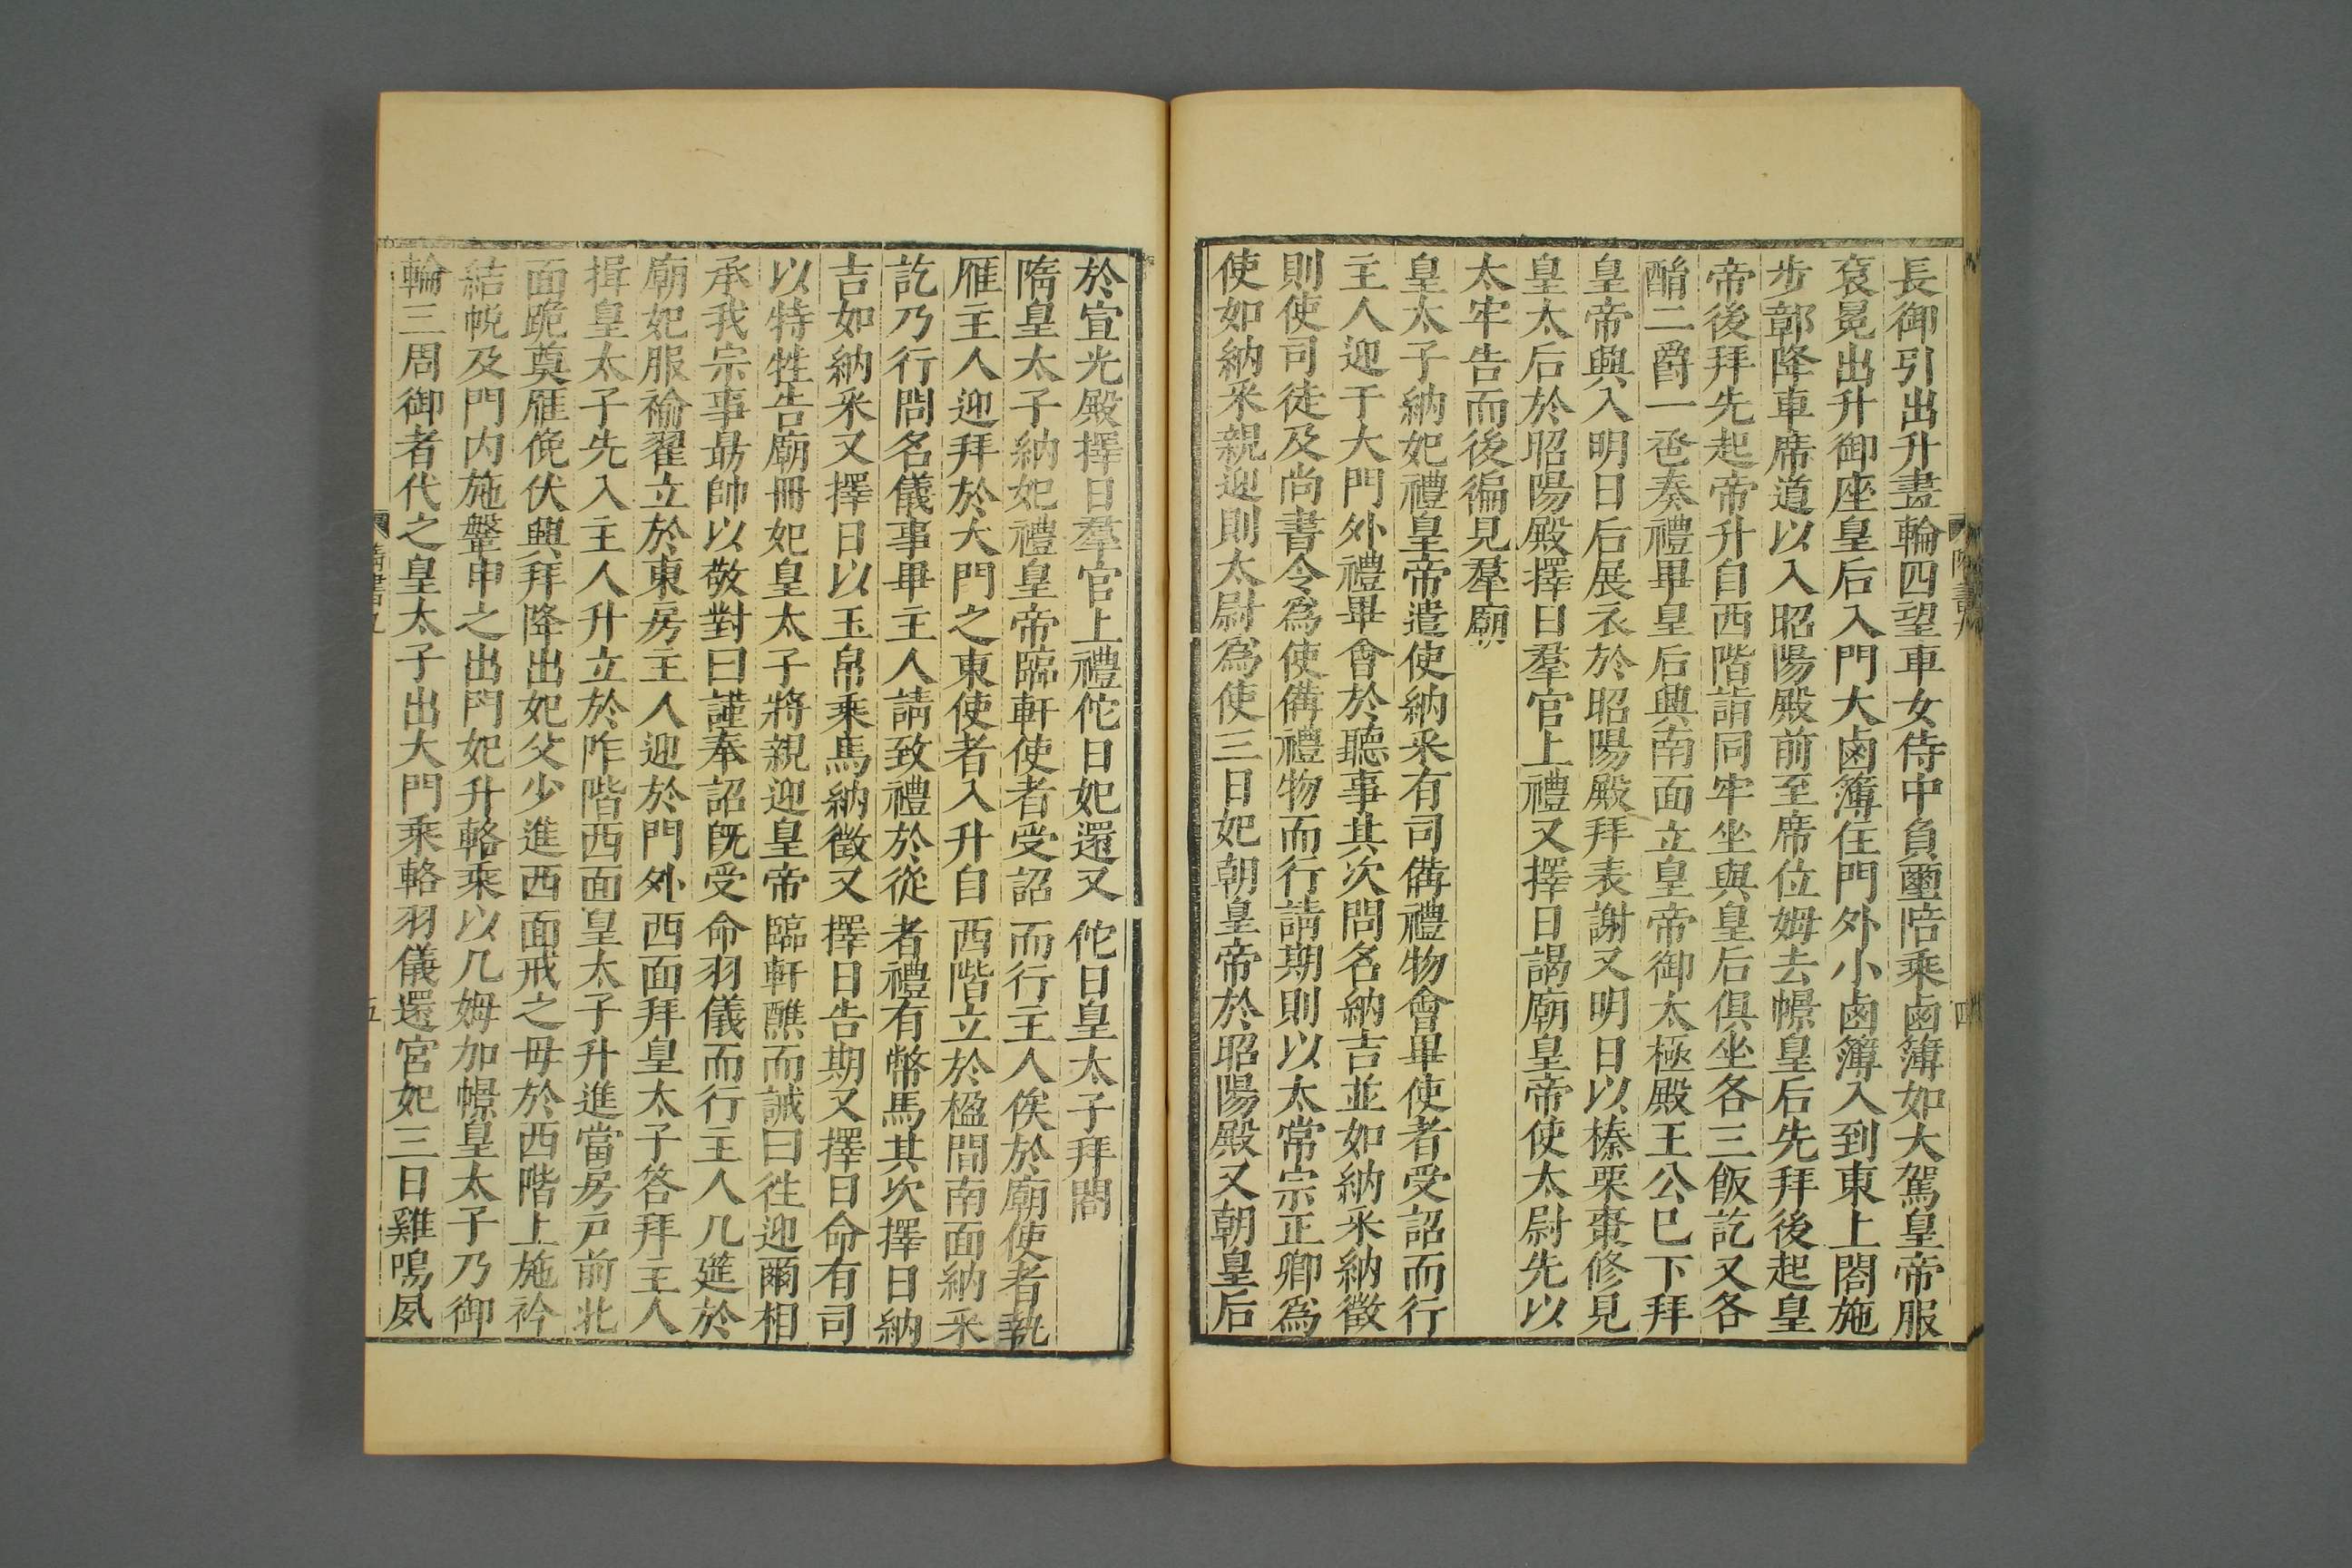 長御引出升畫輪四望車女侍中負璽陪乘鹵簿如大駕皇帝服
袞冕出升御座皇后入門大鹵簿住門外小鹵簿入到東上閤施
步鄣降車席道以入昭陽殿前至席位姆去幜皇后先拜後起皇
帝後拜先起帝升自西階詣同牢坐與皇后俱坐各三飯訖又各
酳二爵一卺奏禮畢皇后興南面立皇帝御太極殿王公已下拜
皇帝興入明日后展衣於昭陽殿拜表謝又明日以榛栗棗修見
皇太后於昭陽殿擇日羣官上禮又擇日謁廟皇帝使太尉先以
太牢告而後徧見羣廟
皇太子納妃禮皇帝遣使納采有司備禮物會畢使者受詔而行
主人迎于大門外禮畢會於聽事其次問名納吉並如納采納徵
則使司徒及尚書令爲使備禮物而行請期則以太常宗正卿爲
使如納采親迎則太尉爲使三日妃朝皇帝於昭陽殿又朝皇后
隋書九
四
於宣光殿擇日羣官上禮佗日妃還又佗日皇太子拜閤
隋皇太子納妃禮皇帝臨軒使者受詔而行主人俟於廟使者執
雁主人迎拜於大門之東使者入升自西階立於楹間南面納采
訖乃行問名儀事畢主人請致禮於從者禮有幣馬其次擇日納
吉如納采又擇日以玉帛乘馬納徵又擇日告期又擇日命有司
以特牲告廟冊妃皇太子將親迎皇帝臨軒醮而誡曰往迎爾相
承我宗事勗帥以敬對曰謹奉詔既受命羽儀而行主人几筵於
廟妃服褕翟立於東房主人迎於門外西面拜皇太子答拜主人
揖皇太子先入主人升立於阼階西面皇太子升進當房戶前北
面跪奠雁俛伏興拜降出妃父少進西面戒之毋於西階上施衿
結帨及門内施鞶申之出門妃升輅乘以几姆加幜皇太子乃御
輪三周御者代之皇太子出大門乘輅羽儀還宮妃三日雞鳴夙
隋書九
五